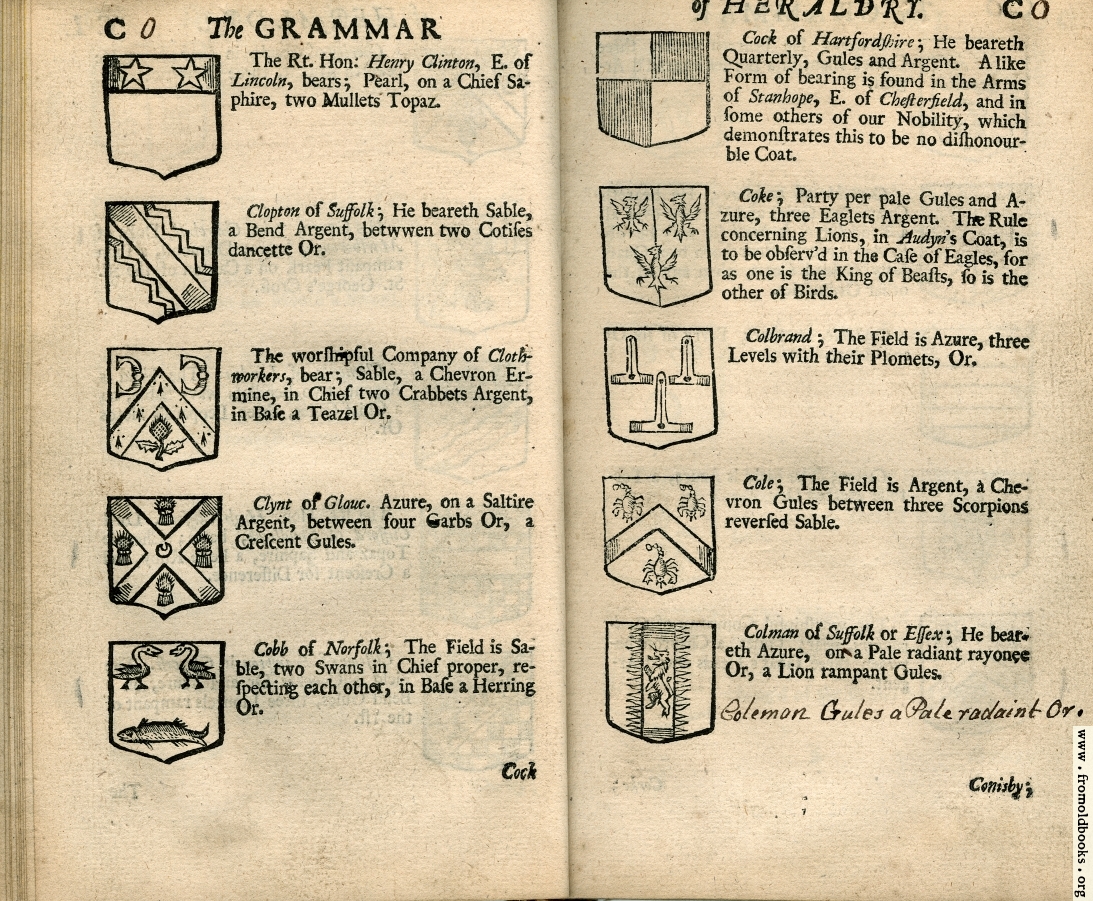 C O The GRAMMAR
The Rt. Hon: Henry Clinton, E. of
Lincoln, bears; Pearl, on a Chief Sa-
phire, two Mullets Topaz.
Clopton of Suffolk; He beareth Sable,
a Bend Argent, betwwen two Cotiſes
dancette Or.
The worſhipful Company of Cloth-
workers, bear; Sable, a Chevron Er-
mine, in Chief two Crabbets Argent,
in Baſe a Teazel Or.
Clynt of Glouc. Azure, on a Saltire
Argent, between four Garbs Or, a
Creſcent Gules.
Cobb of Norfolk; The Field is Sa-
ble, two Swans in Chief proper, re-
ſpecting each other, in Baſe a Herring
Or.
Cock
of HERALDRY. C O
Cock of Hartfordſhire; He beareth
Quarterly, Gules and Argent. A like
Form of bearing is found in the Arms
of Stanhope, E. of Cheſterfield, and in
ſome others of our Nobility, which
demonſtrates this to be no diſhonour-
ble Coat.
Coke; Party per pale Gules and A-
zure, three Eaglets Argent. The Rule
concerning Lions, in Audyn's Coat, is
to be obſerv'd in the Caſe of Eagles, for
as one is the King of Beaſts, ſo is the
other of Birds.
Colbrand; The Field is Azure, three
Levels with their Plomets, Or.
Cole; The Field is Argent, a Che-
vron Gules between three Scorpions
reverſed Sable.
Colman of Suffolk or Eſſex; He bear-
eth Azure, on a Pale radiant rayonee
Or, a Lion rampant Gules.
Colemon Gules a Pale radaint Or.
Conisby;
www.fromoldbooks.org